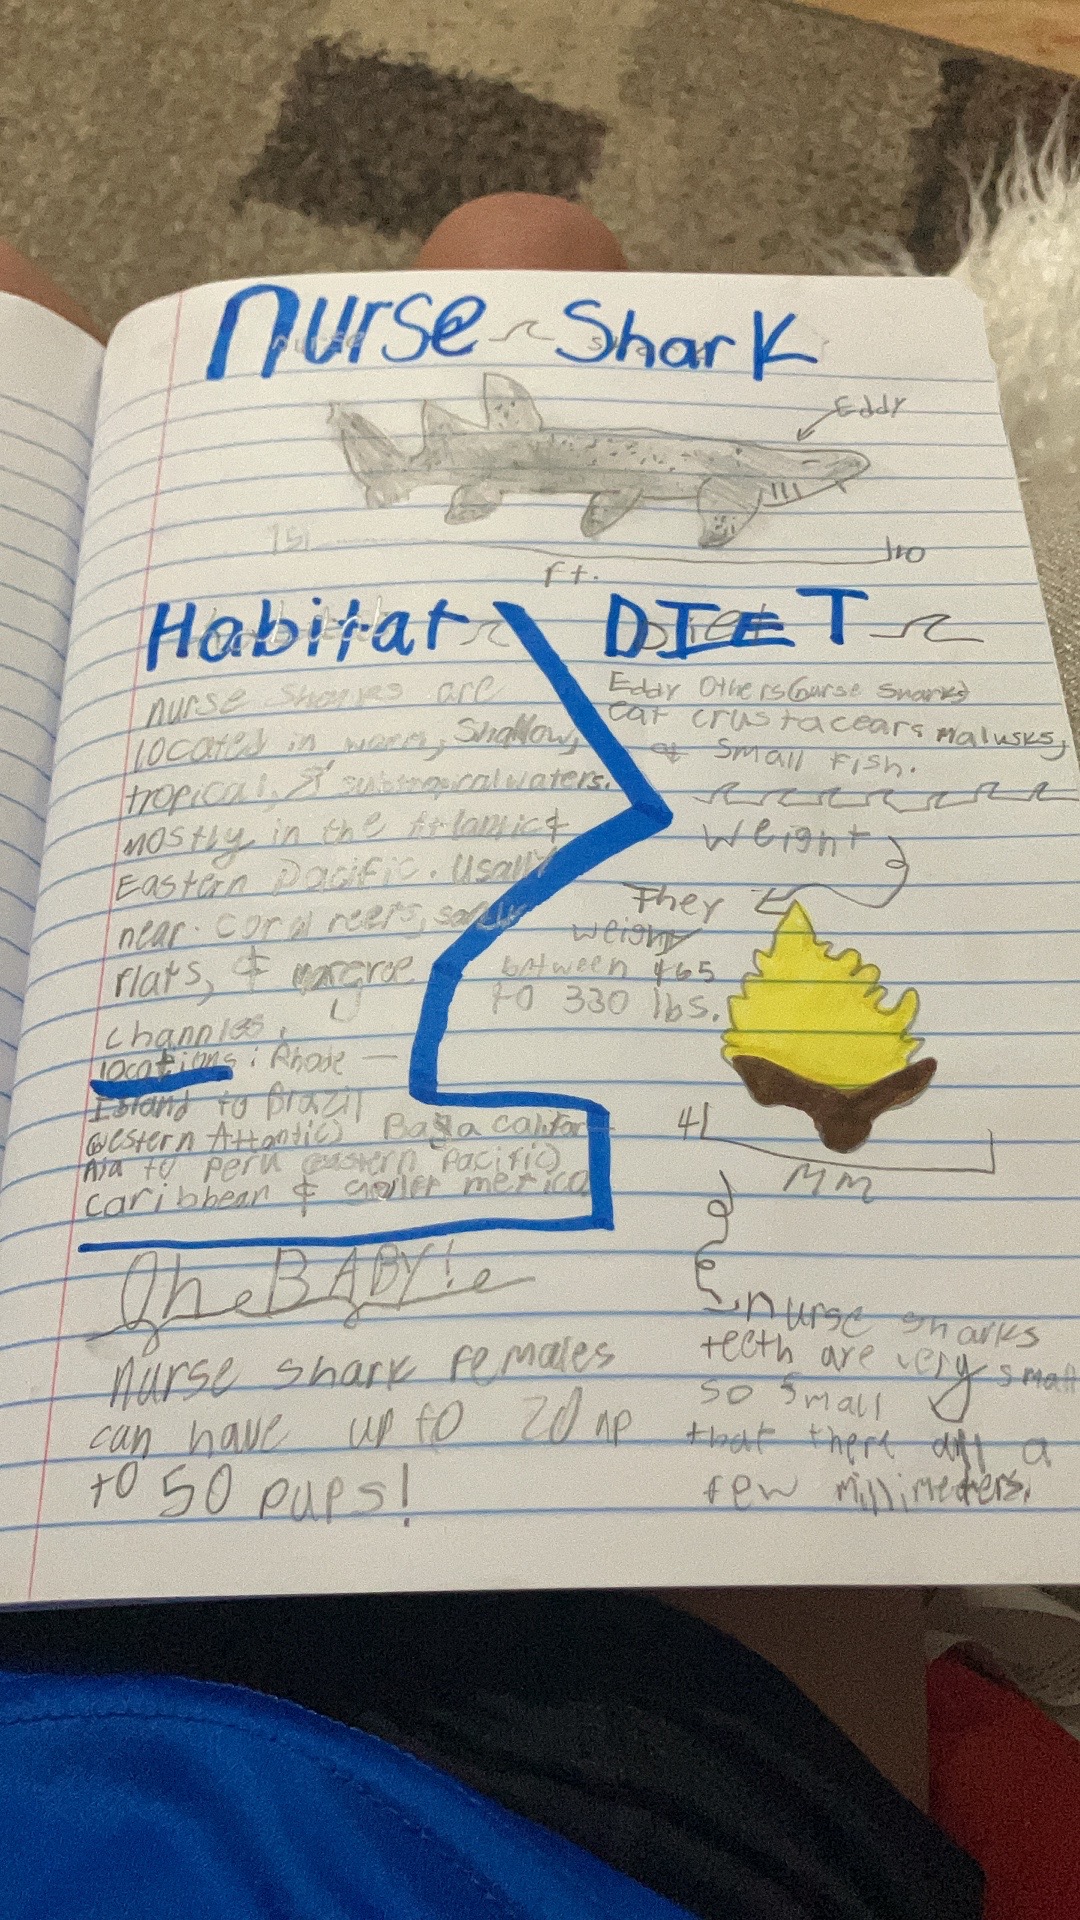 nurse Shark
Eddy
10
Ft.
Habitat
nurse Sharks are
located in warm, Shallow,
tropical, & subtropical waters.
mostly in the Atlantic &
Eastern Pacific. Usally
near coral reefs,
flats, &
channles.
locations: Rhode
Island to Brazil
Western Atlantic) Baja califor
nia to peru (eastern pacific)
caribbean &
DIET
Eddy others (nurse sharks)
eat crustacears malusks,
& Small Fish.
Weight
They
weight
between 165
to 330 lbs.
41
MM
nurse sharks
teeth are very small
so small
that there all a
few millimeters.
The BABY!
nurse shark females
can have up to 20 np
to 50 pups!